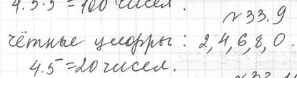 4.5.5=100 чисел.
№33.9
чётные цифры: 2,4,6,8,0.
4.5=20 чисел.